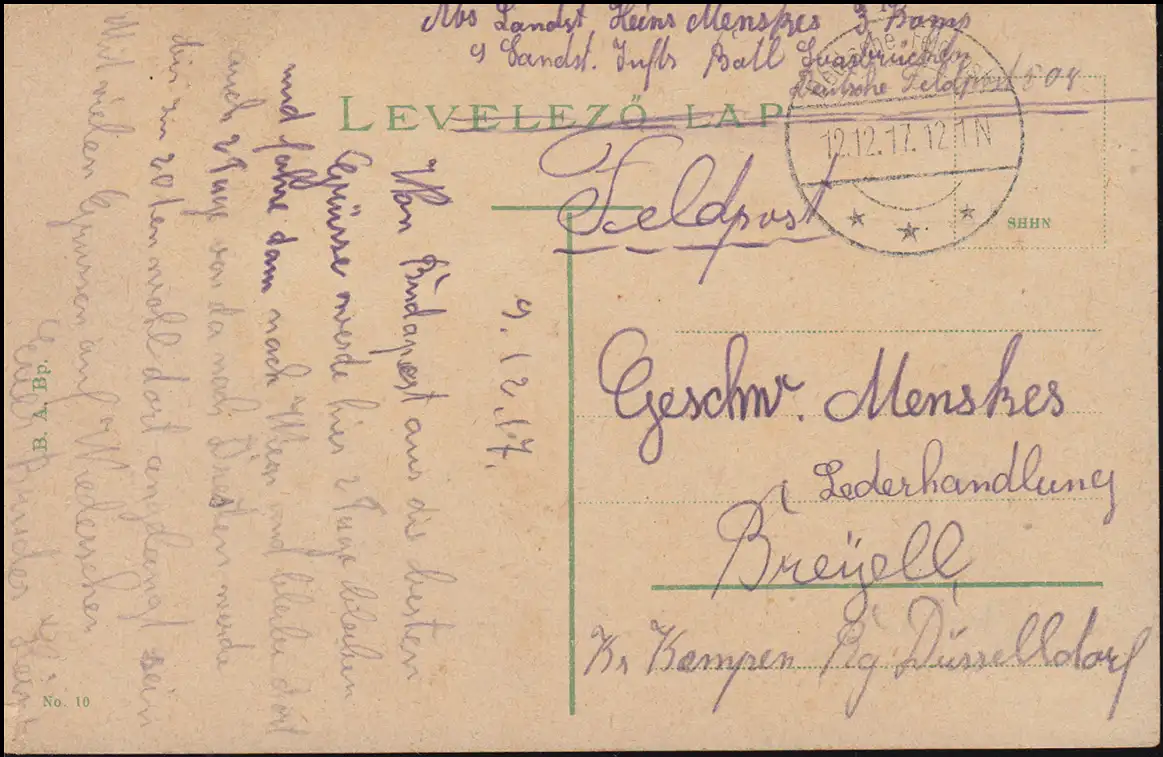 Abs Landst. Heins Menskes 3 Komp
9 Landst. Inft. Batl Saarbrücken
Deutsche Feldpost 504
LEVELEZŐ LAP
Deutsche Feldpost
12.12.17.12-1N
Feldpost
SHHN
9.12.17.
Von Budapest aus die besten
Grüsse werde hier 2 Tage bleiben
und fahre dann nach Wien und bleibe dort
auch 2 Tage von da nach Dresten werde
bis zum 20ten wohl dort angelangt sein
Mit vielen Grüssen auf Wiedersehen
Euer Bruder Heins
Geschw. Menskes
Lederhandlung
Breÿell
Kr Kempen Rg Düsselldorf
B. A. Bp.
No. 10